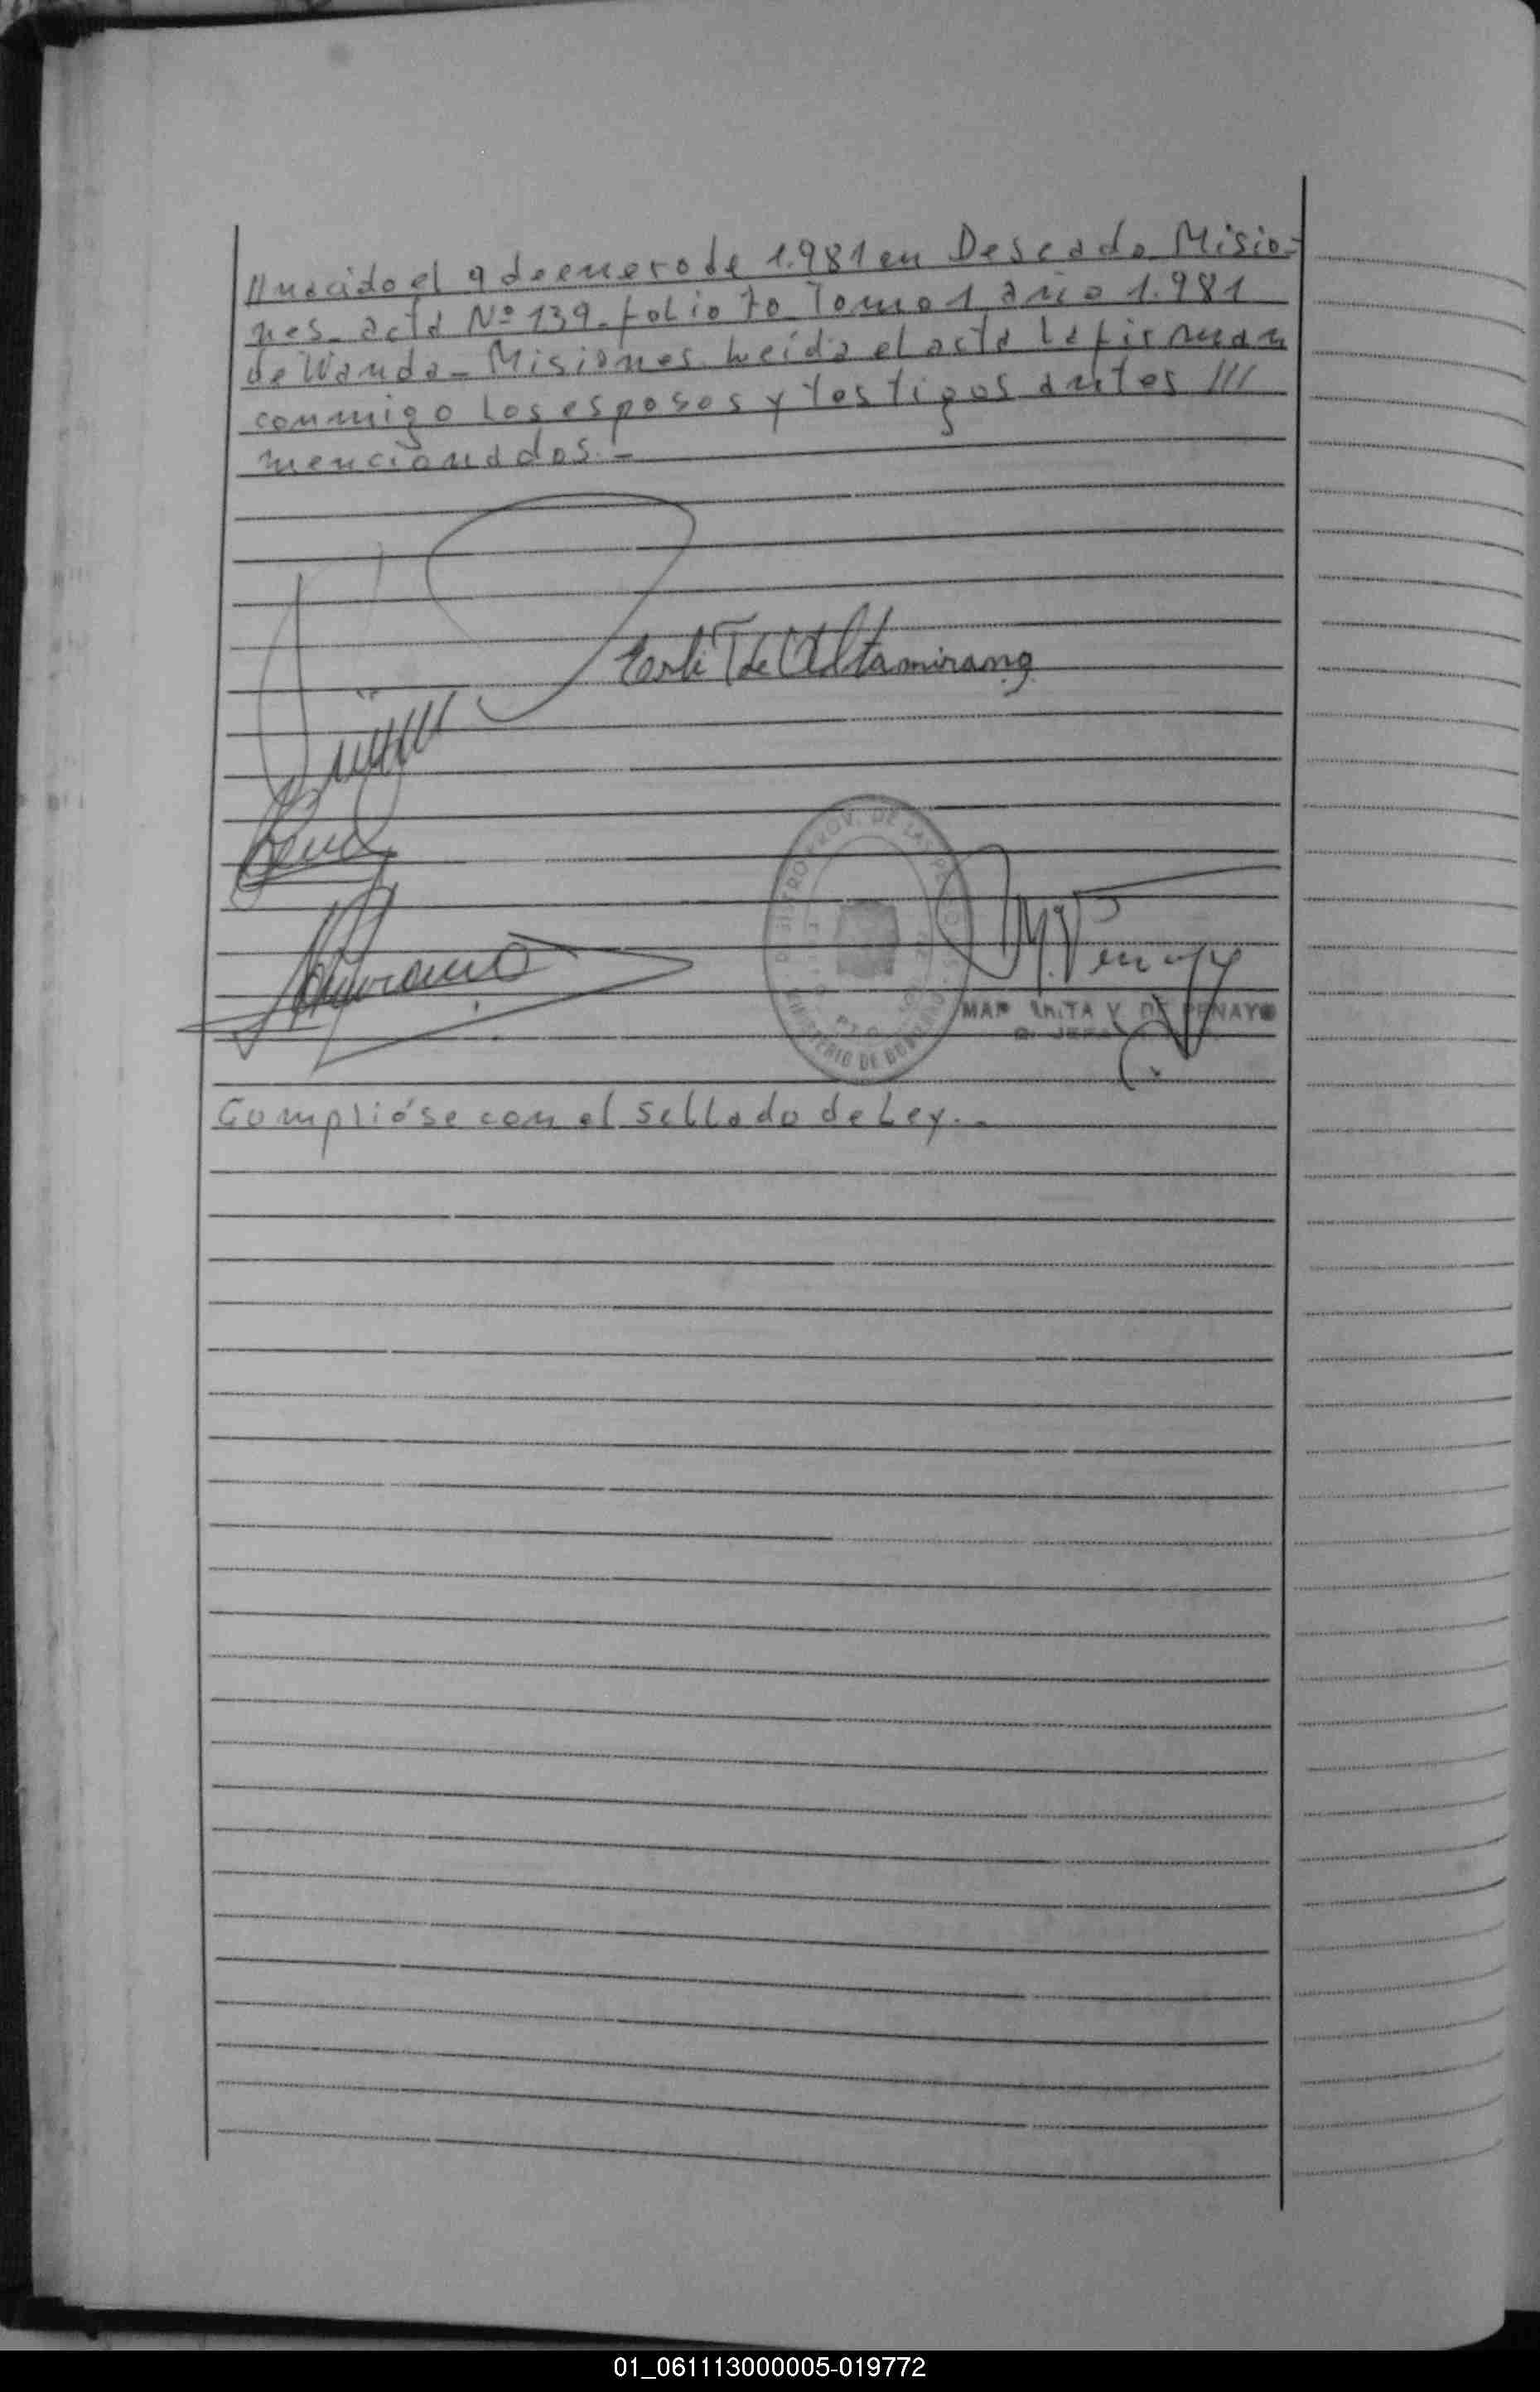 //nacido el 9 de enero de 1.981 en Deseado Misio=
nes. acta Nº 139. folio 70 Tomo 1 año 1.981
de Wanda - Misiones. Leída el acta la firman
conmigo los esposos y testigos antes ///
mencionados. -
T de Altamirano
M. V. Penayo
V DE PENAYO
MINISTERIO DE GOBIERNO
PROV. DE LAS
Cumplióse con el sellado de Ley. -
01_061113000005-019772